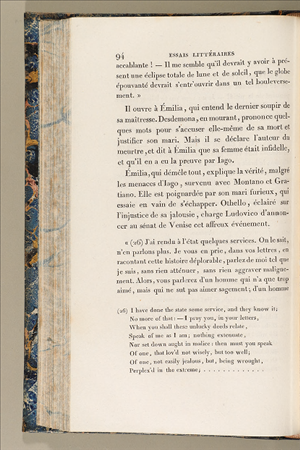 94 ESSAIS LITTÉRAIRES
accablante ! — Il me semble qu'il devrait y avoir à pré-
sent une éclipse totale de lune et de soleil, que le globe
épouvanté devrait s'entr'ouvrir dans un tel bouleverse-
ment. »
Il ouvre à Émilia, qui entend le dernier soupir de
sa maîtresse. Desdemona, en mourant, prononce quel-
ques mots pour s'accuser elle-même de sa mort et
justifier son mari. Mais il se déclare l'auteur du
meurtre, et dit à Émilia que sa femme était infidelle,
et qu'il en a eu la preuve par Iago.
Émilia, qui démêle tout, explique la vérité, malgré
les menaces d'Iago, survenu avec Montano et Gra-
tiano. Elle est poignardée par son mari furieux, qui
essaie en vain de s'échapper. Othello, éclairé sur
l'injustice de sa jalousie, charge Ludovico d'annon-
cer au sénat de Venise cet affreux événement.
« (26) J'ai rendu à l'état quelques services. On le sait,
n'en parlons plus. Je vous en prie, dans vos lettres, en
racontant cette histoire déplorable, parlez de moi tel que
je suis, sans rien atténuer, sans rien aggraver maligne-
ment. Alors, vous parlerez d'un homme qui n'a que trop
aimé, mais qui ne sut pas aimer sagement; d'un homme
(26) I have done the state some service, and they know it;
No more of that: — I pray you, in your letters,
When you shall these unlucky deeds relate,
Speak of me as I am; nothing extenuate,
Nor set down aught in malice: then must you speak
Of one, that lov'd not wisely, but too well;
Of one, not easily jealous, but, being wrought,
Perplex'd in the extreme; . . . . . . . . . . . . .